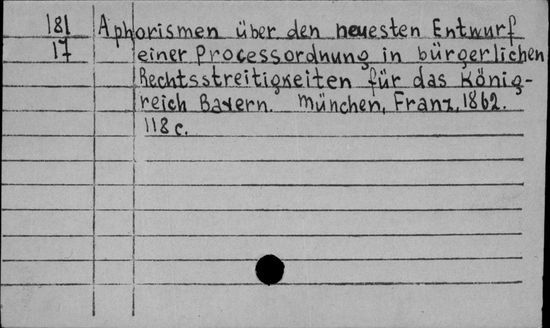 181 Aphorismen über den neuesten Entwurf
17 einer Processordnung in bürgerlichen
Rechtsstreitigkeiten für das König-
reich Bayern. München, Franz, 1862.
118 c.